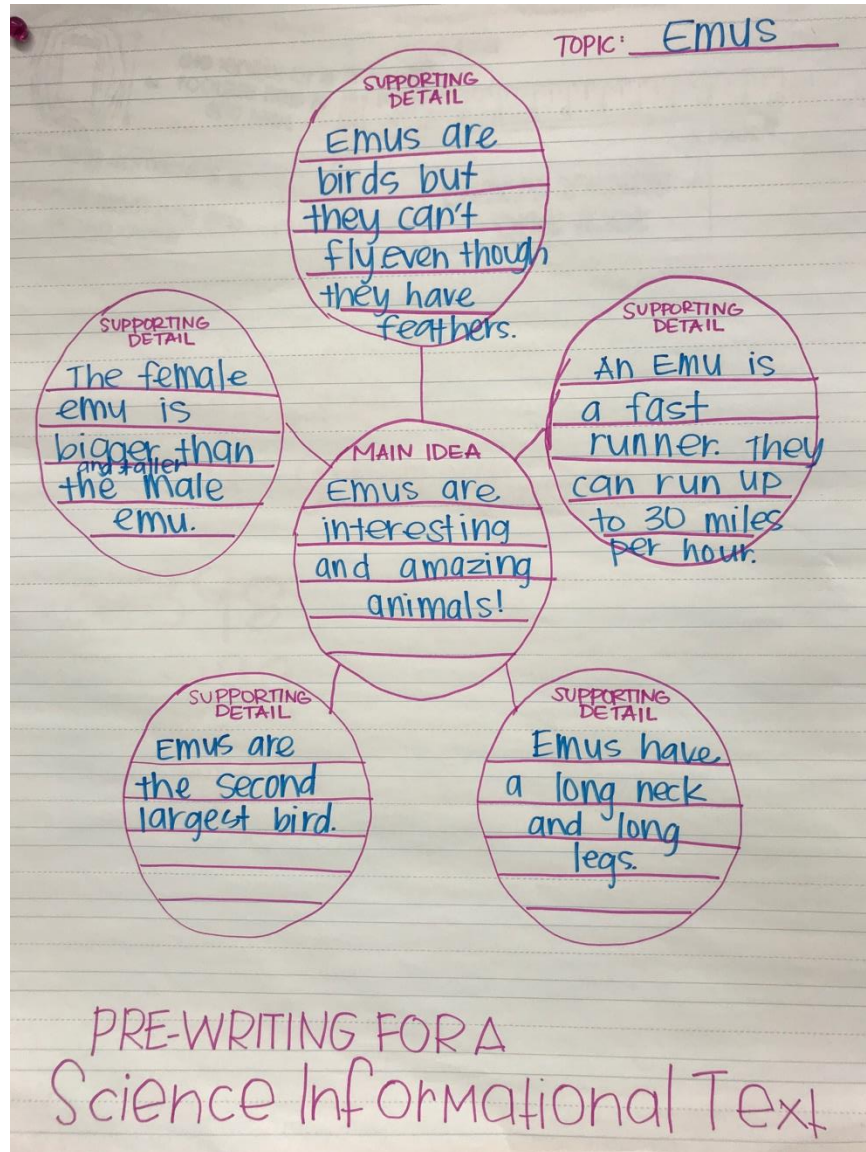 TOPIC: Emus
SUPPORTING
DETAIL
Emus are
birds but
they can't
fly even though
they have
feathers.
SUPPORTING
DETAIL
The female
emu is
bigger than
and taller
the male
emu.
SUPPORTING
DETAIL
An Emu is
a fast
runner. They
can run up
to 30 miles
per hour.
MAIN IDEA
Emus are
interesting
and amazing
animals!
SUPPORTING
DETAIL
Emus are
the second
largest bird.
SUPPORTING
DETAIL
Emus have
a long neck
and long
legs.
PRE-WRITING FOR A
Science Informational Text